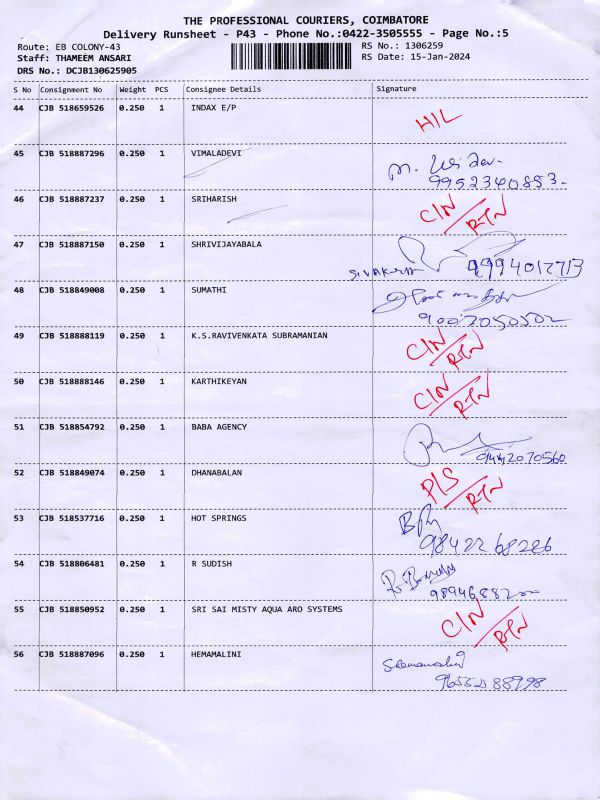 THE PROFESSIONAL COURIERS, COIMBATORE
Delivery Runsheet - P43 - Phone No.:0422-3505555 - Page No.:5
Route: EB COLONY-43 RS No.: 1306259
Staff: THAMEEM ANSARI RS Date: 15-Jan-2024
DRS No.: DCJB130625905
S No Consignment No Weight PCS Consignee Details Signature
44 CJB 518659526 0.250 1 INDAX E/P H/L
45 CJB 518887296 0.250 1 VIMALADEVI
9952340853
46 CJB 518887237 0.250 1 SRIHARISH C/N / RTN
47 CJB 518887150 0.250 1 SHRIVIJAYABALA
9994012713
48 CJB 518849008 0.250 1 SUMATHI
49 CJB 518888119 0.250 1 K.S.RAVIVENKATA SUBRAMANIAN C/N / RTN
50 CJB 518888146 0.250 1 KARTHIKEYAN C/N / RTN
51 CJB 518854792 0.250 1 BABA AGENCY
9442070560
52 CJB 518849074 0.250 1 DHANABALAN P/S / RTN
53 CJB 518537716 0.250 1 HOT SPRINGS
9842268286
54 CJB 518806481 0.250 1 R SUDISH
55 CJB 518850952 0.250 1 SRI SAI MISTY AQUA ARO SYSTEMS C/N / RTN
56 CJB 518887096 0.250 1 HEMAMALINI